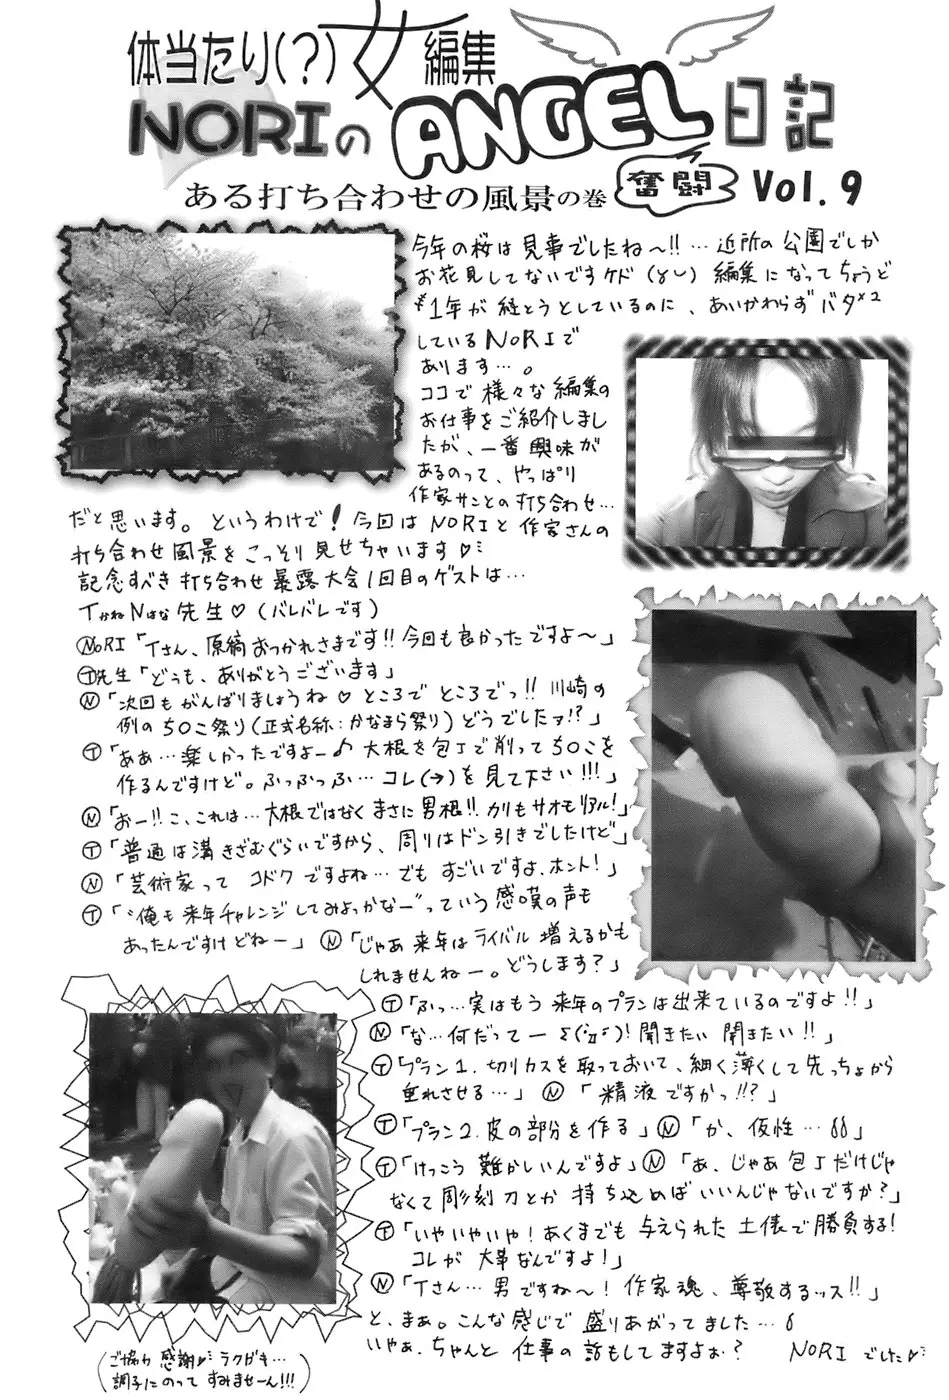 体当たり(?)女編集
NORIのANGEL日記
ある打ち合わせの風景の巻 奮闘 Vol.9
今年の桜は見事でしたね〜!!…近所の公園でしか
お花見してないですケド 編集になってちょうど
1年が経とうとしているのに、あいかわらずバタ×2
しているNORIで
あります…。
ココで様々な編集の
お仕事をご紹介しまし
たが、一番興味が
あるのって、やっぱり
作家サンとの打ち合わせ…
だと思います。というわけで!今回はNORIと作家さんの
打ち合わせ風景をこっそり見せちゃいます♡
記念すべき打ち合わせ暴露大会1回目のゲストは…
TかねNはな先生♡(バレバレです)
ⓃORI「Tさん、原稿おつかれさまです!!今回も良かったですよ〜」
Ⓣ先生「どうも、ありがとうございます」
Ⓝ「次回もがんばりましょうね♡ところでところでっ!!川崎の
例のちOこ祭り(正式名称:かなまら祭り)どうでしたァ!?」
Ⓣ「ああ…楽しかったですよー♪大根を包丁で削ってちOこを
作るんですけど。ふっふっふ…コレ(→)を見て下さい!!!」
Ⓝ「おー!!こ、これは…大根ではなくまさに男根!!カリもサオもリアル!」
Ⓣ「普通は溝きざむぐらいですから、周りはドン引きでしたけど」
Ⓝ「芸術家って コドクですよね…でもすごいですよ、ホント!」
Ⓣ「"俺も来年チャレンジしてみよっかなー"っていう感嘆の声も
あったんですけどねー」Ⓝ「じゃあ来年はライバル増えるかも
しれませんねー。どうします?」
Ⓣ「ふっ…実はもう来年のプランは出来ているのですよ!!」
Ⓝ「な…何だってーΣ(ﾟДﾟ)!聞きたい聞きたい!!」
Ⓣ「プラン1.切りカスを取っておいて、細く薄くして先っちょから
垂れさせる…」Ⓝ「精液ですかっ!!?」
Ⓣ「プラン2.皮の部分を作る」Ⓝ「か、仮性…」
Ⓣ「けっこう難かしいんですよ」Ⓝ「あ、じゃあ包丁だけじゃ
なくて彫刻刀とか持ち込めばいいんじゃないですか?」
Ⓣ「いやいやいや!あくまでも与えられた土俵で勝負する!
コレが大事なんですよ!」
Ⓝ「Tさん…男ですね〜!作家魂、尊敬するッス!!」
と、まぁ。こんな感じで盛りあがってました…
いやぁ、ちゃんと仕事の話もしてますよぉ? NORIでした♡
(ご協力感謝♡ラクガキ…
調子にのってすみませーん!!!)